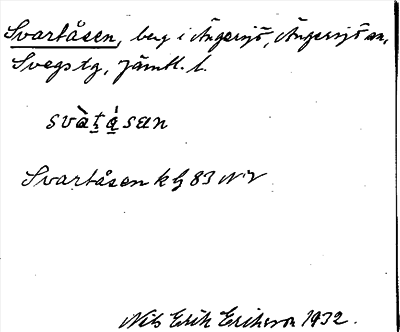 Svartåsen, berg i Ängersjö, Ängersjö sn,
Svegs tg, Jämtl. l.
svàt̠á̠sɑn
Svartåsen k bl 83 NV
Nils Erik Erikson 1932.